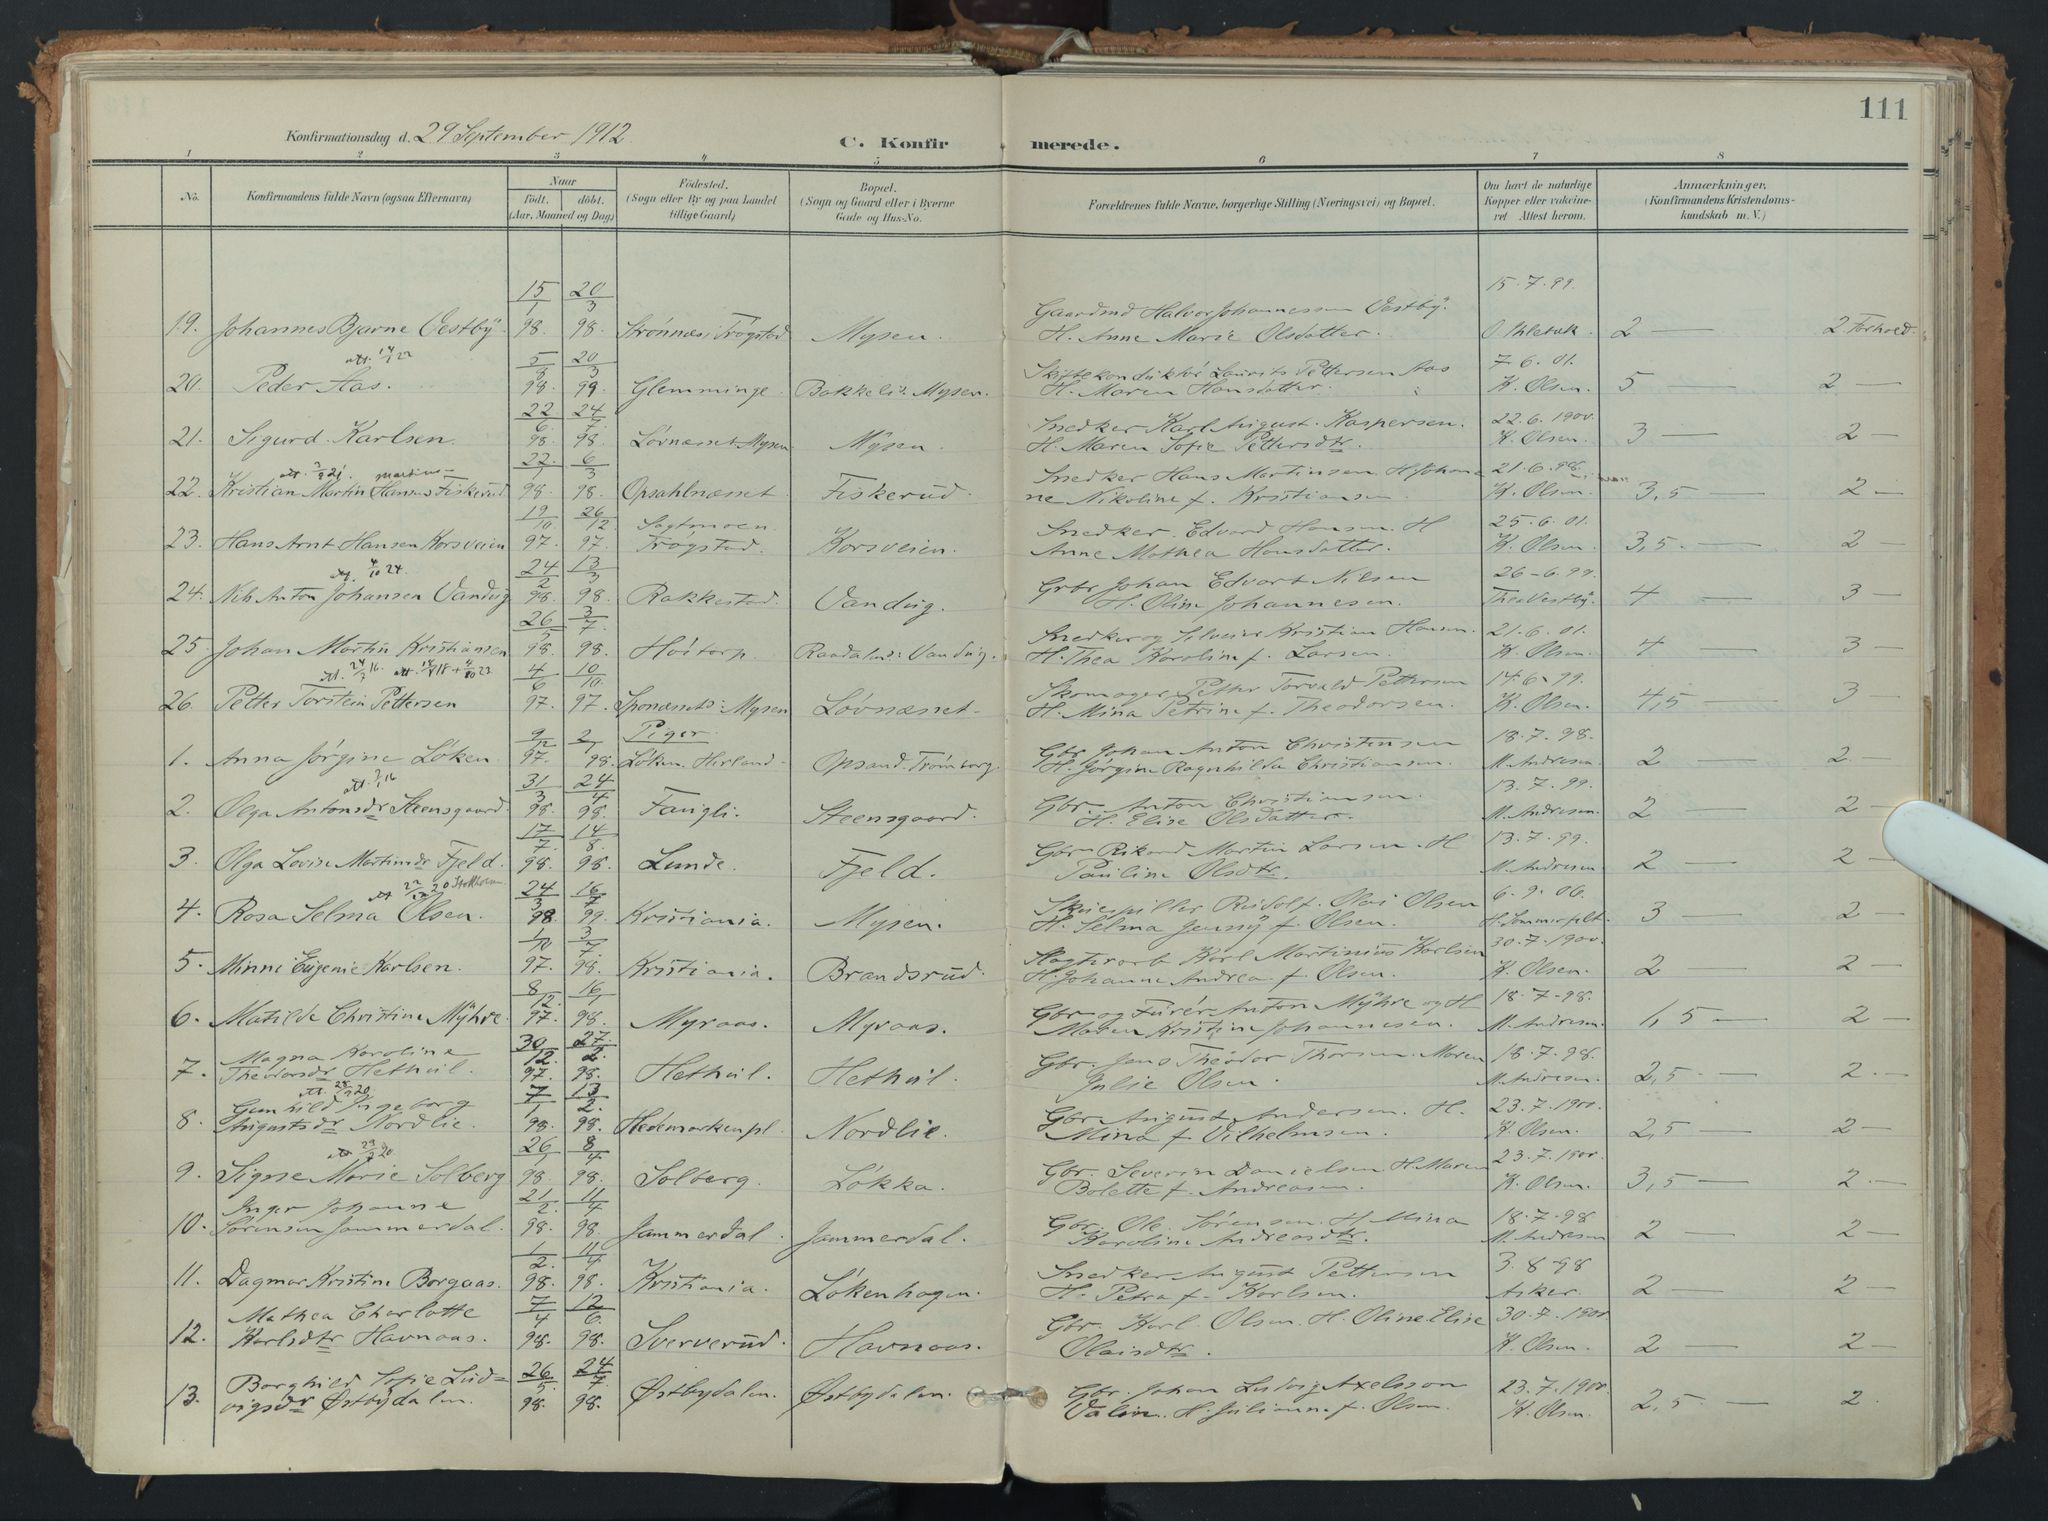 111
Konfirmationsdag d. 29 September 1912.
C. Konfirmerede.
1 2 3 4 5 6 7 8
No. Konfirmandens fulde Navn (ogsaa Efternavn) Naar Født. døbt. (Aar, Maaned og Dag) Fødested. (Sogn eller By og paa Landet tillige Gaard) Bopæl. (Sogn og Gaard eller i Byerne Gade og Hus-No. Forældrenes fulde Navne, borgerlige Stilling (Næringsvei) og Bopæl. Om havt de naturlige Kopper eller vakcineret Attest herom. Anmærkninger. (Konfirmandens Kristendomskundskab m. V.)
19. Johannes Bjarne Vestbÿ. 15/1 98. 20/3 98. Trøgstad Mysen. Gaardmd Halvor Johannessen Vestbÿ. H. Anne Marie Olsdatter. 15.7.99. 2 — 2 Forhold.
20. Peder Aas. 98. 20/3 99. Glemminge. Bakkeli: Mysen. Laurits Pettersen Aas H. Maren Hansdatter. 7-6.01. K. Olsen. 5 — 2 —
21. Sigurd Karlsen. 22/6 98. 24/7 98. Løvnæsset Mysen Mÿsen. Snedker Karl August Kaspersen. H. Maren Sofie Pettersdtr. 22.6.1900. K. Olsen. 3 — 2 —
22. Kristian Martin Hansen Fiskerud 22/1 98. 6/3 98. Opsahlnæsset. Fiskerud. Snedker Hans Martinsen H Johanne Nikoline f. Kristiansen. 21.6.98. K. Olsen. 3,5 — 2 —
23. Hans Arnt Hansen Korsveien 19/10 97. 26/12. 97. Trøgstad. Korsveien. Snedker. Edvard Hansen. H Anne Mathea Hansdatter. 25.6.01. K. Olsen. 3,5. — 2 —
24. Nils Anton Johansen Vandug 24/2 98. 13/3 98. Rakkestad. Vandug. Grbr Johan Edvart Nilsen H. Oline Johannesen. 26-6.99. Thea Vestbÿ. 4 — 3 —
25. Johan Martin Kristiansen 26/5 98. 3/7 98. Høitorp. Vandug. Snedker og Kristian Hansen. H. Thea Karoline f. Larsen. 21.6.01. K. Olsen. 4 — 3 —
26. Petter Torstein Pettersen 4/6 97. 10/10. 97. Mysen Løvnæsset. Skomager Petter Torvald Pettersen H. Mina Petrine f. Theodorsen. 14.6-99. K. Olsen. 4,5 — 3 —
Piger.
1. Anna Jørgine Løken. 9/12 97. 2/1 98. Løken. Hærland. Opsand. Trømborg. Gbr. Johan Anton Christensen H. Jørgine Ragnhilda Christiansen. 18.7.98. M. Andresen. 2 — 2 —
2. Olga Antonsdr Steensgaard. 31/3 98. 24/4 98. Fangli. Steensgaard. Gbr. Anton Christiansen. H. Elise Olsdatter. 13.7.99. M. Andresen. 2 — 2 —
3. Olga Lovise Martinsdr Fjeld. 17/7. 98. 14/8. 98. Lunde. Fjeld. Gbr. Rikard Martin Larsen. H Pauline Olsdtr. 13.7.99. M. Andresen. 2 — 2 —
4. Rosa Selma Olsen. 24/3 98. 16/7 99. Kristiania. Mysen. Skuespiller Rudolf Olai Olsen H. Selma Jenny f. Olsen. 6.9.06. H. Sommerfelt. 3 — 2 —
5. Minne Eugenie Karlsen. 1/10 97. 3/7. 98. Kristiania. Brandsrud. Karl Martinius Karlsen H. Johanne Andrea f. Olsen. 30.7.1900. K. Olsen. 2 — 2 —
6. Matilde Christine Mÿhre. 8/12. 97. 16/1 98. Myraas. Myraas. Gbr og Furér Anton Mÿhre og H Maren Kristine Johannesen. 18.7-98. M. Andresen. 1,5 — 2 —
7. Magna Karoline Theodorsdr Hethul. 30/12. 97. 27/2. 98. Hethul. Hethul. Gbr. Jens Theodor Thorsen. Maren Julie Olsen. 18.7.98. M. Andresen. 2,5 — 2 —
8. Gunhild Ingeborg Augustsdr Nordlie. 7/1 98. 13/2. 98. Hedemarken pl. Nordlie. Gbr August Andersen. H. Mina f. Vilhelmsen. 23.7.1900. K. Olsen. 2,5 — 2 —
9. Signe Marie Solberg 26/1 98. 8/4 98. Solberg. Løkka. Gbr. Severin Danielsen H. Maren Bolette f. Andreasen. 23.7.1900. K. Olsen. 3,5 — 2 —
10. Inger Johanne Sørensen Jammerdal. 21/2. 98. 11/4 98. Jammerdal. Jammerdal. Gbr. Ole Sørensen. H. Mina Karoline Andreasdtr. 18.7-98 M. Andresen 2 — 2 —
11. Dagmar Kristine Borgaas. 1/2. 98. 11/4 98. Kristiania. Løkenhagen. Snedker August Pettersen H. Petra f. Karlsen. 3.8-98 Asker. 2 — 2 —
12. Mathea Charlotte Karlsdtr Havnaas. 7/4 98. 12/6. 98. Sververud. Havnaas. Gbr. Karl Olsen. H. Oline Elise Olaisdtr. 30.7.1900 K. Olsen. 2 — 2 —
13. Borghild Sofie Ludvigsdr Østbydalen. 26/5. 98. 24/7. 98. Østbydalen. Østbydalen. Gbr. Johan Ludvig Axelsson Valin. H. Julianne f. Olsen. 23.7.1900. K. Olsen. 2,5 — 2